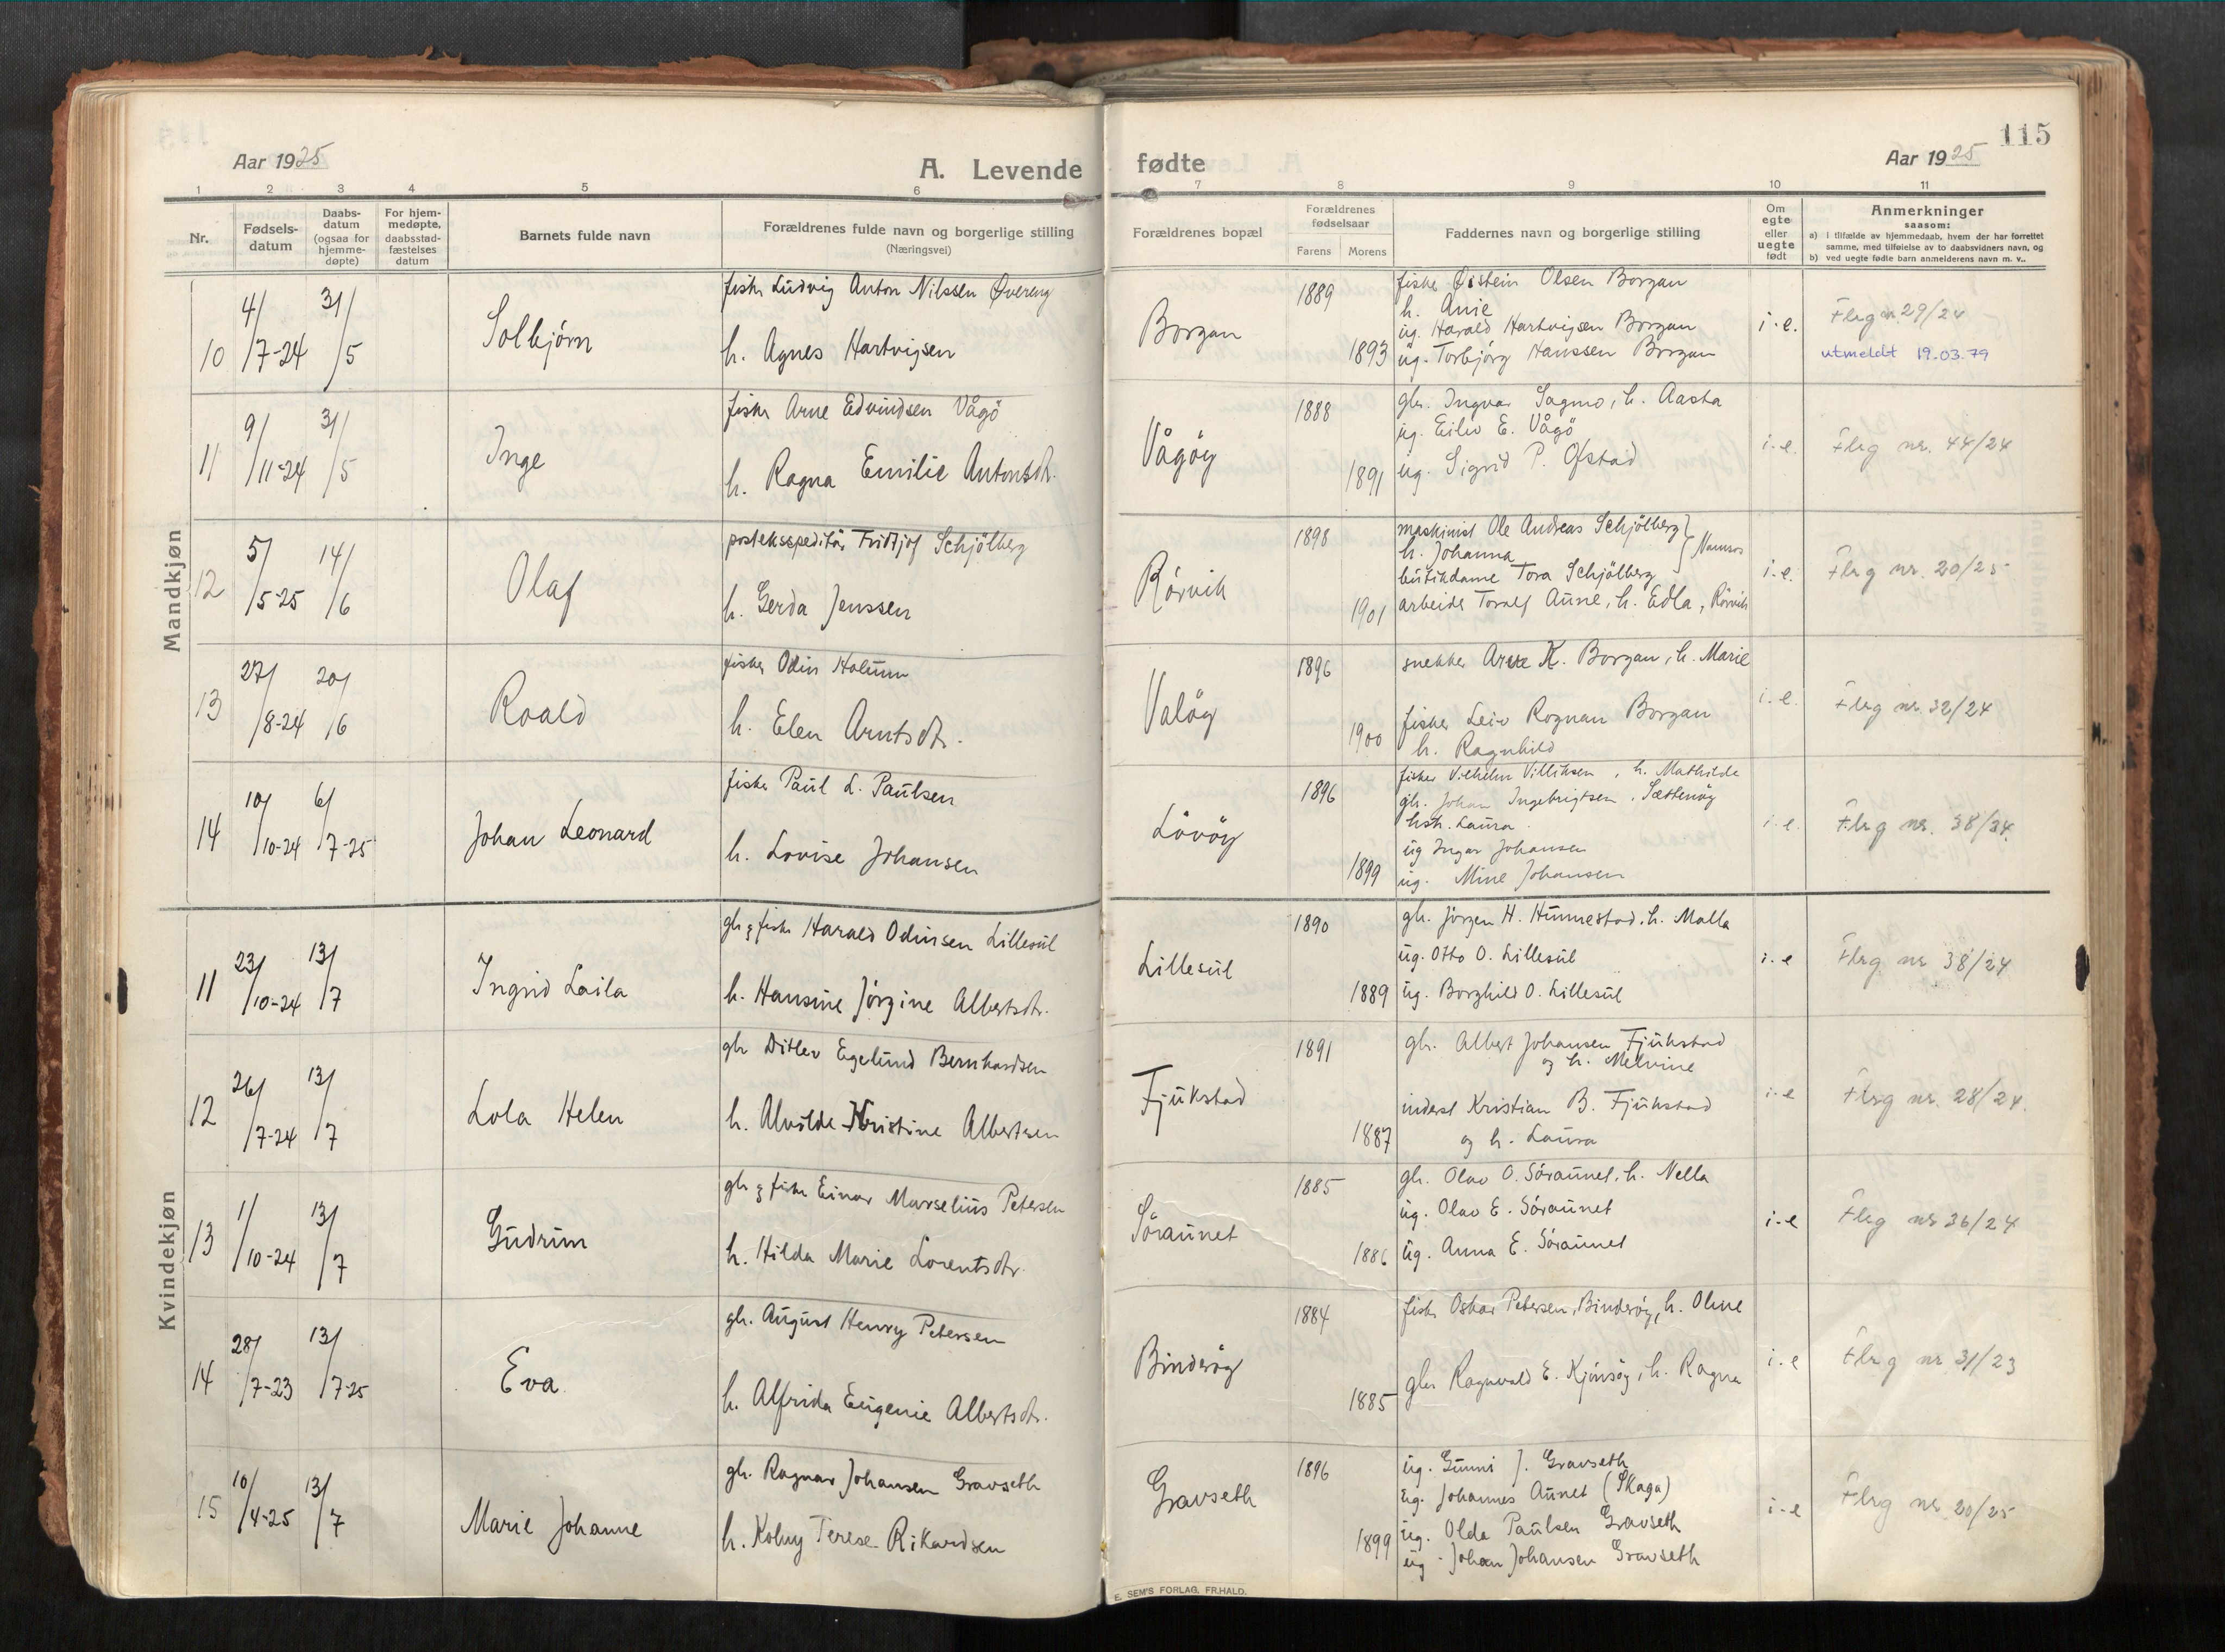 115
Aar 1925
A. Levende fødte
Aar 1925
1 2 3 4 5 6 7 8 9 10 11
Nr.
Fødsels-
datum
Daabs-
datum
(ogsaa for
hjemme-
døpte)
For hjem-
medøpte,
daabsstad-
fæstelses
datum
Barnets fulde navn
Forældrenes fulde navn og borgerlige stilling
(Næringsvei)
Forældrenes bopæl
Forældrenes
fødselsaar
Farens Morens
Faddernes navn og borgerlige stilling
Om
egte
eller
uegte
født
Anmerkninger
saasom:
a) i tilfælde av hjemmedaab, hvem der har forrettet
samme, med tilføielse av to daabsvidners navn, og
b) ved uegte fødte barn anmelderens navn m. v..
Mandkjøn
10 4/7-24 31/5 Solbjörn
fisker Ludvig Anton Nilssen Øvereng
h. Agnes Hartvigsen
Borgan 1889 1893
fisker Øistein Olsen Borgan
h. Anie
ug. Harald Hartvigsen Borgan
ug. Torbjörg Hanssen Borgan
i.e. Flrg nr. 29/24
utmeldt 19.03.79
11 9/11-24 31/5 Inge
fisker Arne Edvindsen Vågö
h. Ragna Emilie Antonsdtr.
Vågöy 1888 1891
gbr. Ingvar Sagmo, h. Aasta
ug. Eiliv E. Vågö
ug. Sigrid P. Ofstad
i.e. Flrg nr. 44/24
12 5/5-25 14/6 Olaf
postekspeditör Fridtjof Schjölberg
h. Gerda Jenssen
Rörvik 1898 1901
maskinist Ole Andreas Schjölberg
h. Johanna } Namsos
butikdame Tora Schjölberg
arbeider Toralf Aune, h. Edla, Rörvik
i.e. Flrg nr. 20/25
13 27/8-24 20/6 Roald
fisker Odin Holum
h. Elen Arntsdtr.
Valöy 1896 1900
snekker Arne K. Borgan, h. Marie
fisker Leiv Rognan Borgan
h. Ragnhild
i.e. Flrg nr. 32/24
14 10/10-24 6/7-25 Johan Leonard
fisker Paul L. Paulsen
h. Lovise Johansen
Lövöy 1896 1899
fisker Vilhelm Villiksen, h. Mathilde
gbr. Johan Ingebrigtsen, Sætteröy
hstr. Laura
ug Ingar Johansen
ug. Mine Johansen
i.e. Flrg nr. 38/24
Kvindekjøn
11 23/10-24 13/7 Ingrid Laila
gbr & fisker Harald Odinsen Lillesül
h. Hansine Jörgine Albertsdtr.
Lillesül 1890 1889
gbr. Jörgen H. Hunnestad, h. Malla
ug. Otto O. Lillesül
ug. Borghild O. Lillesül
i.e Flrg nr 38/24
12 26/7-24 13/7 Lola Helen
gbr Ditlev Egelund Bernhardsen
h. Alvilde Kristine Albertsen
Fjukstad 1891 1887
gbr. Albert Johansen Fjukstad
og h. Melvine
inderst Kristian B. Fjukstad
og h. Laura
i.e Flrg nr. 28/24.
13 1/10-24 13/7 Gudrun
gbr & fisker Einar Marselius Petersen
h. Hilda Marie Lorentsdtr.
Söraunet 1885 1886
gbr. Olav O. Söraunet, h. Nella
ug. Olav E. Söraunet
ug. Anna E. Söraunet
i.e Flrg nr 36/24
14 28/7-23 13/7-25 Eva
gbr. August Henry Petersen
h. Alfrida Eugenie Albertsdtr.
Binderöy 1884 1885
fisker Oskar Petersen, Binderöy, h. Oline
gbr Ragnvald E. Kjönsöy, h. Ragna
i.e Flrg nr 31/23
15 10/4-25 13/7 Marie Johanne
gbr. Ragnar Johansen Gravseth
h. Kolny Terese Rikardsen
Gravseth 1896 1899
ug. Gunni J. Gravseth
ug. Johannes Aunet (Skaga)
ug. Olda Paulsen Gravseth
ug. Johan Johansen Gravseth
i.e Flrg nr 20/25
E. SEM'S FORLAG, FR.HALD.